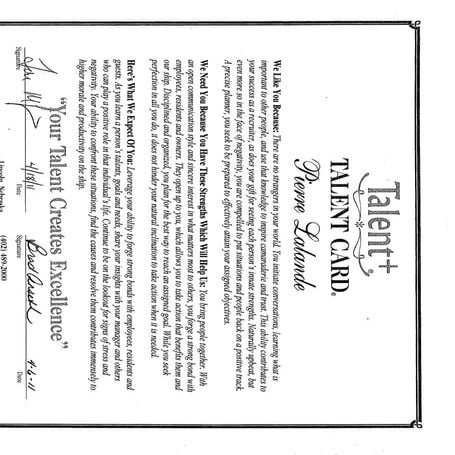 Talent+
TALENT CARD®
Pierre Lalande
We Like You Because: There are no strangers in your world. You initiate conversations, learning what is
important to other people, and use that knowledge to inspire camaraderie and trust. This ability contributes to
your success as a recruiter, as does your gift for seeing each person's innate strengths. Naturally upbeat, but
even more so in the face of negativity, you are compelled to put situations and people back on a positive track.
A precise planner, you seek to be prepared to effectively attain your assigned objectives.
We Need You Because You Have These Strengths Which Will Help Us: You bring people together. With
an open communication style and sincere interest in what matters most to others, you forge a strong bond with
employees, residents and owners. They open up to you, which allows you to take action that benefits them and
our ship. Disciplined and organized, you plan for the best way to reach an assigned goal. While you seek
perfection in all you do, it does not hinder your natural inclination to take action when it is needed.
Here's What We Expect Of You: Leverage your ability to forge strong bonds with employees, residents and
guests. As you learn a person's talents, goals and needs, share your insights with your manager and others
who can play a positive role in that individual's life. Continue to be on the lookout for signs of stress and
negativity. Your ability to confront these situations, find the causes and resolve them contributes immensely to
higher morale and productivity on the ship.
"Your Talent Creates Excellence"
4/18/11 4-6-11
Signature Date Signature Date
Lincoln, Nebraska (402) 489-2000